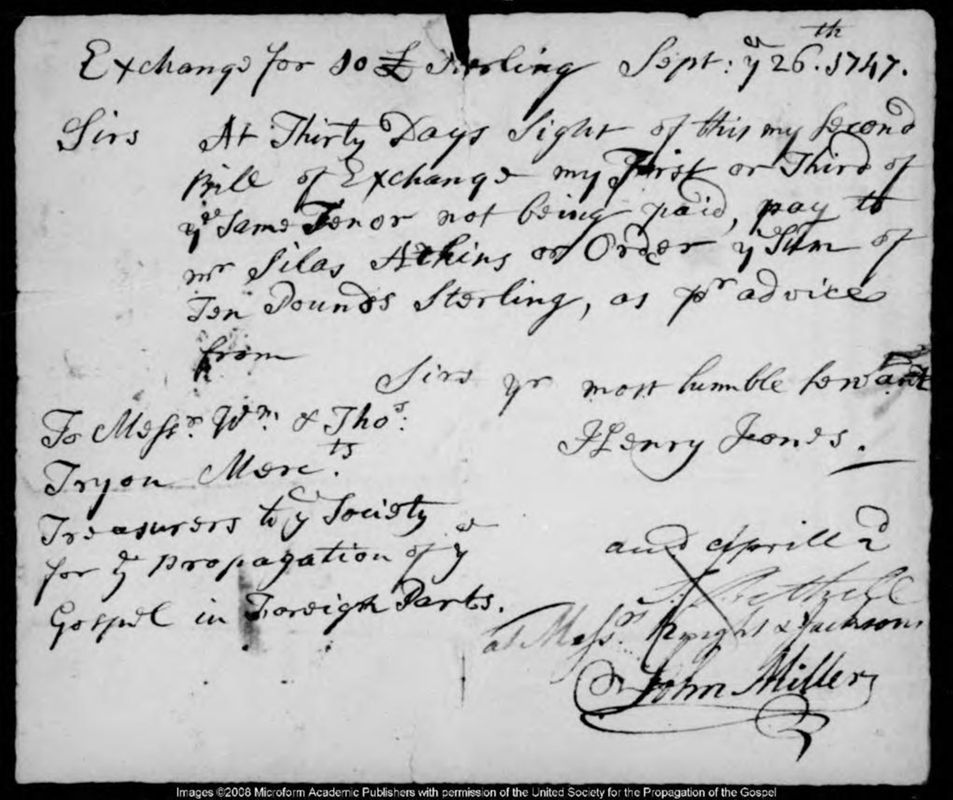 Exchange for 10 £ Sterling Sept: yᵉ 26.ᵗʰ 1747.
Sirs At Thirty Days Sight of this my Second
Bill of Exchange my First or Third of
yᵉ Same Tenor not being paid, pay to
mʳ Silas Atkins or Order yᵉ Sum of
Ten Pounds Sterling, as pʳ advice
from
Sirs yʳ most humble Servant
Henry Jones.
To Messʳˢ. Wᵐ. & Thoˢ.
Tryon Mercᵗˢ.
Treasurers to yᵉ Society
for yᵉ Propagation of yᵉ
Gospel in Foreign Parts.
aprill 2ᵈ
at Messʳˢ & Jackson
John Miller
Images ©2008 Microform Academic Publishers with permission of the United Society for the Propagation of the Gospel